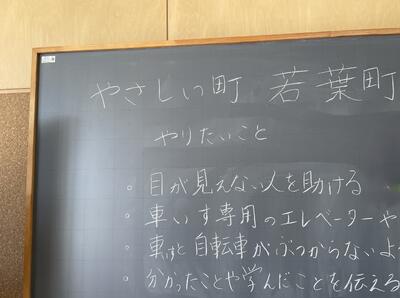 やさしい町 若葉町
やりたいこと
・目が見えない人を助ける
・車いす専用のエレベーターや
・車と自転車がぶつからないよう
・分かったことや学んだことを伝える